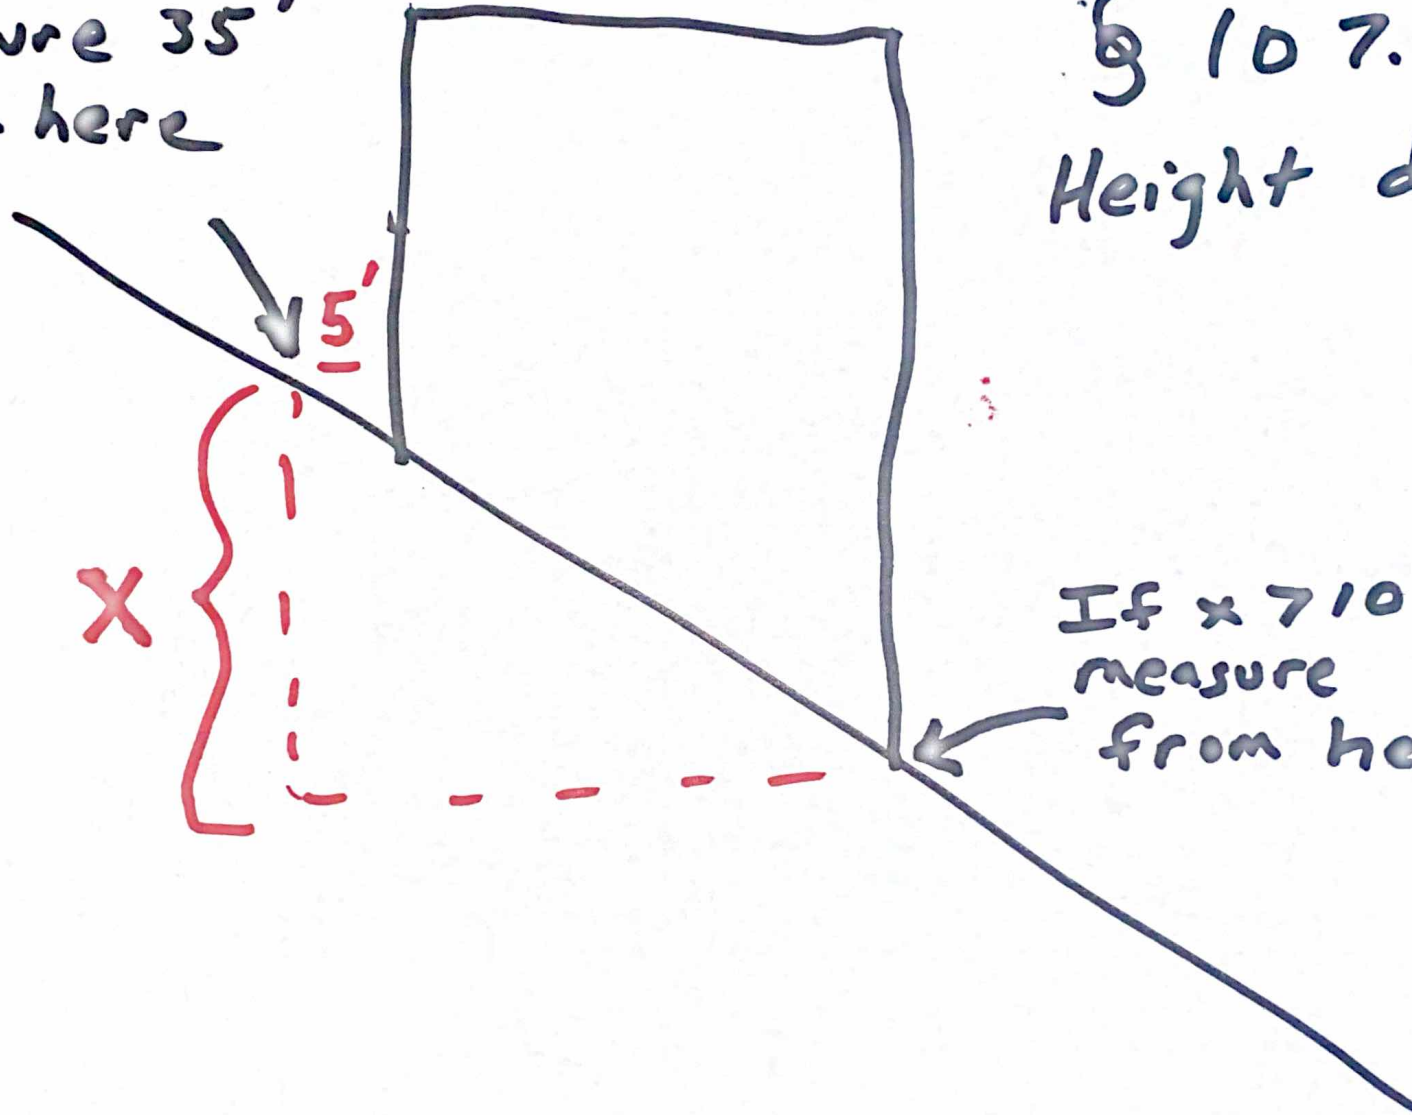 ure 35'
here
§ 107.
Height d
5'
X
If x > 10
measure
from he